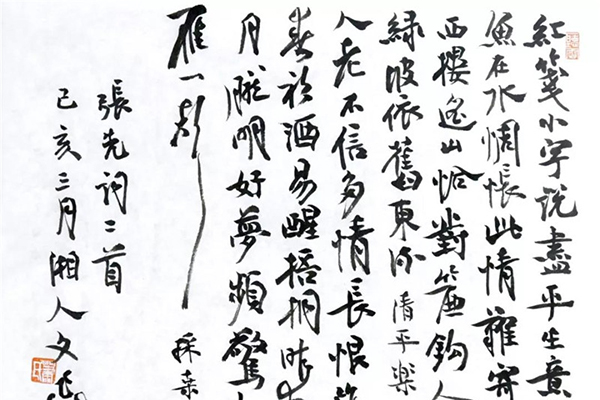 紅箋小字說盡平生意
魚在水惆悵此情難寄
西樓遙山恰對簾鉤人
綠波依舊東流 清平樂
人老不信多情長恨
春衫酒易醒梧桐昨
月朧明好夢頻驚
雁一聲 採桑
張先詞二首
己亥三月湘人文